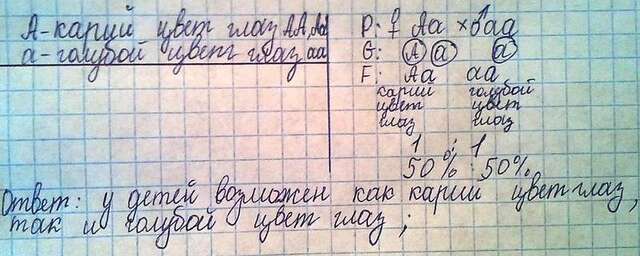 А-карий цвет глаз АА, Аа
а-голубой цвет глаз аа
Р: ♀ Аа × ♂аа
G: А а а
F: Аа аа
карий голубой
цвет цвет
глаз глаз
1 : 1
50% : 50%
Ответ: у детей возможен как карий цвет глаз,
так и голубой цвет глаз;